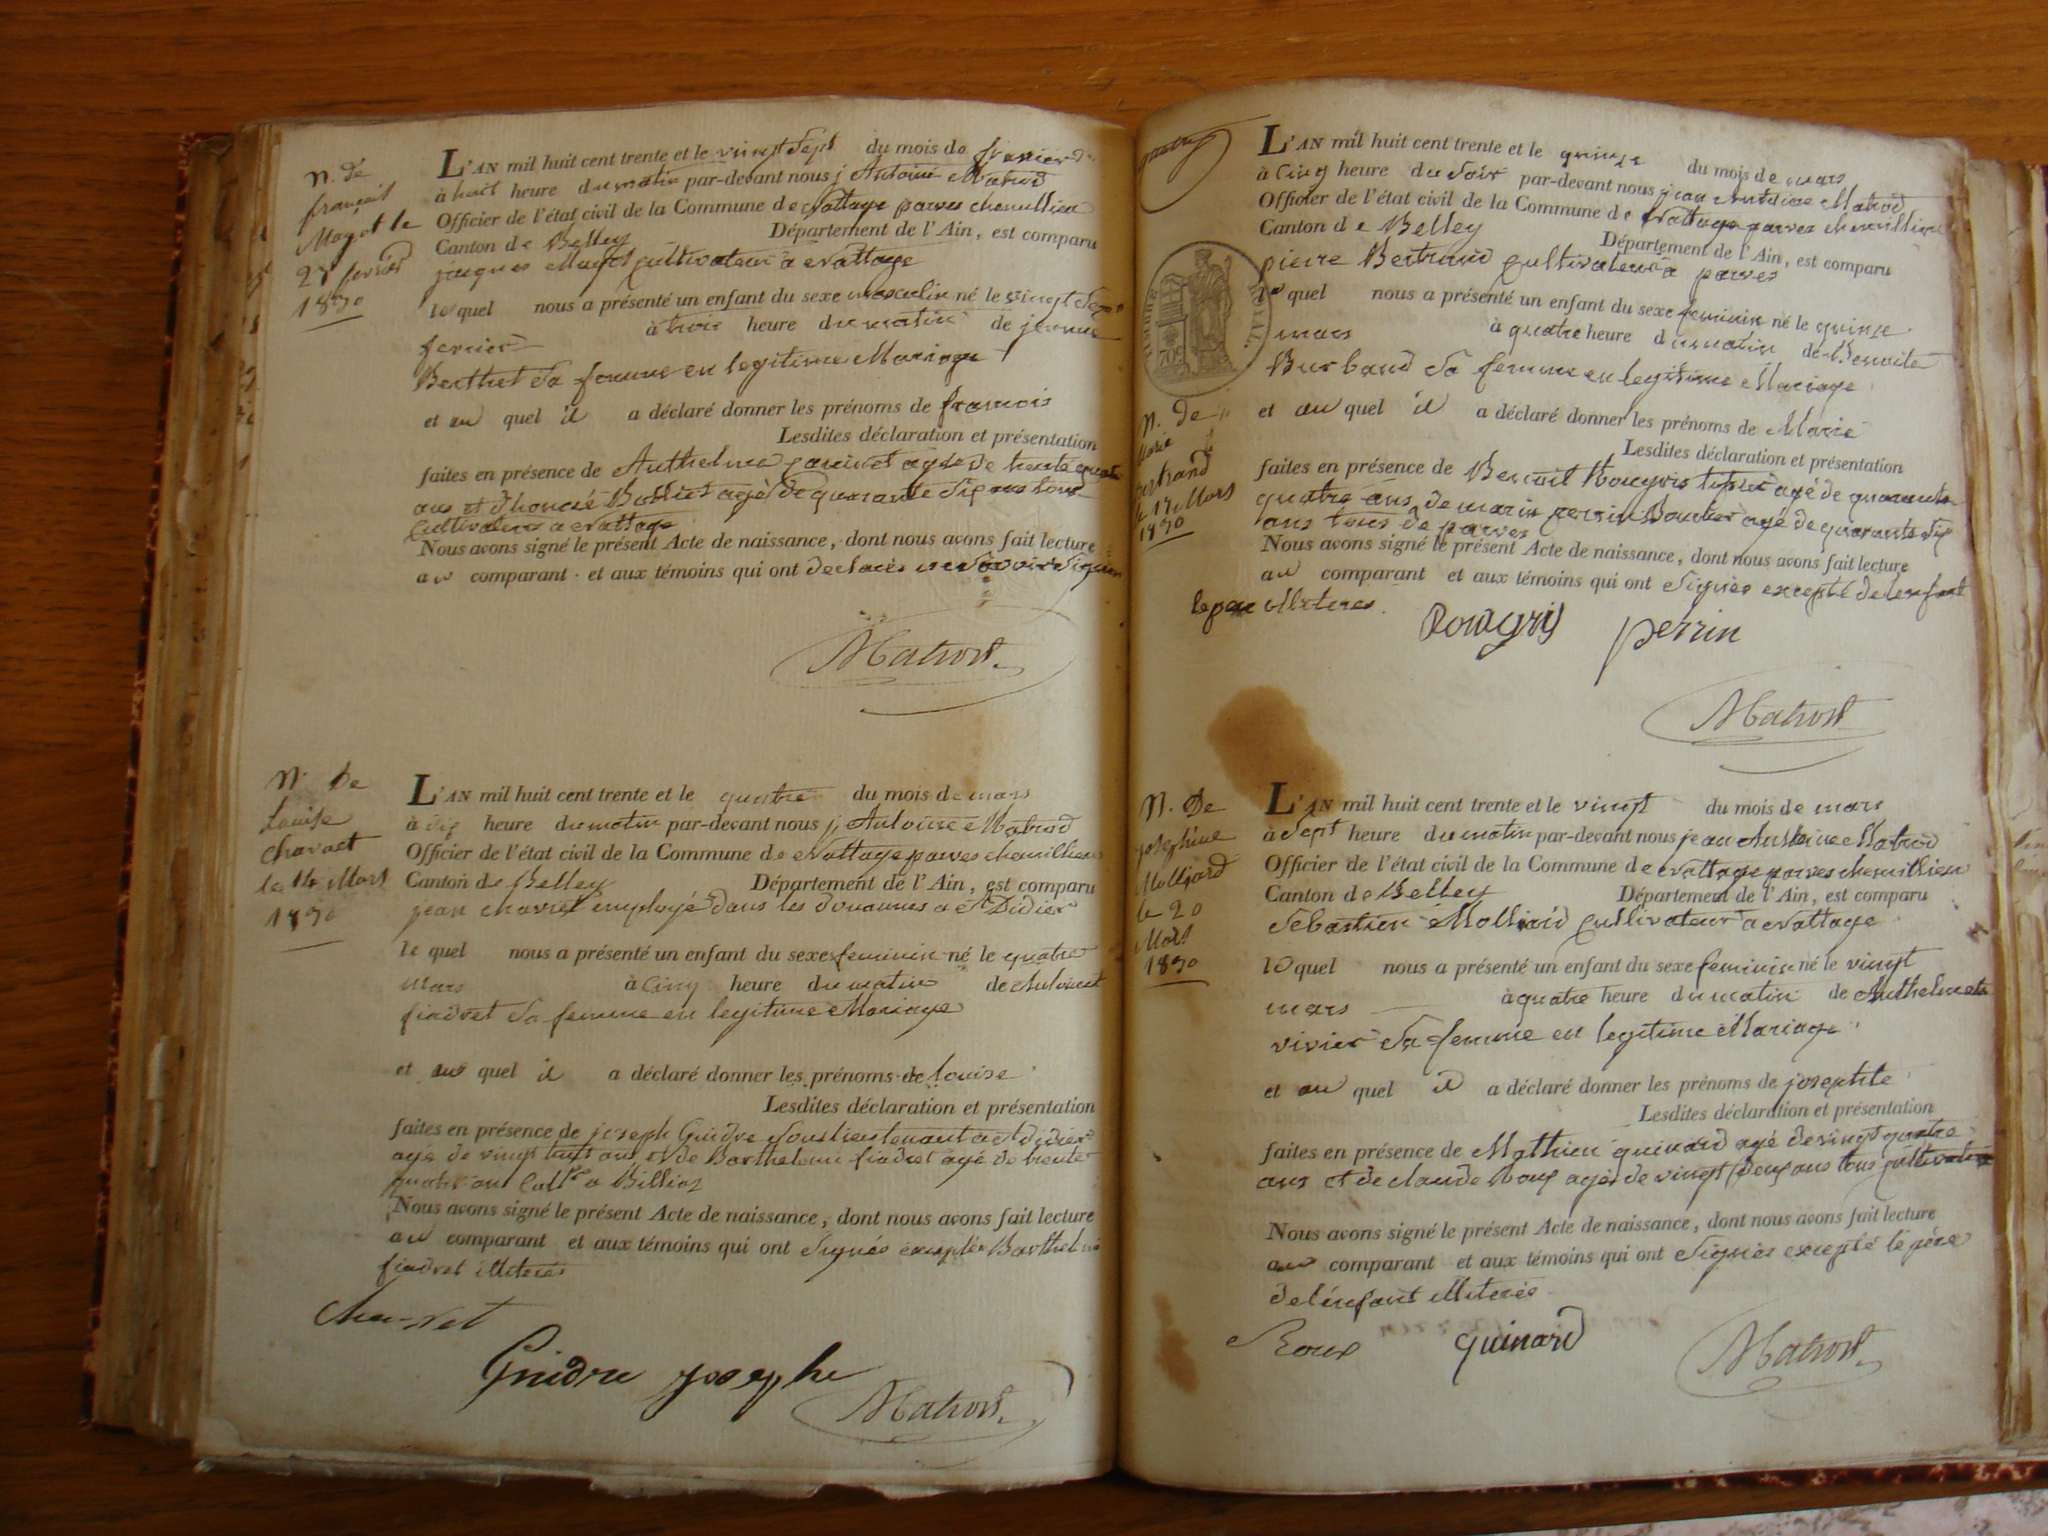 N. de
françois
Magot le
27 fevrier
1830
L'AN mil huit cent trente et le vingt Sept du mois de fevrier
à huit heure du matin par-devant nous j Antoine Matrod
Officier de l'état civil de la Commune de Nattage parves chemillieu
Canton de Belley Département de l'Ain, est comparu
jacques Magot cultivateur à Nattage
lequel nous a présenté un enfant du sexe masculin né le vingt Sept
fevrier à trois heure du matin de jeanne
Berthet Sa femme en legitime Mariage
et au quel il a déclaré donner les prénoms de francois
Lesdites déclaration et présentation
faites en présence de Anthelme agé de trente quatre
ans et d'honoré agé de quarante Six ans tous
cultivateurs a Nattage
Nous avons signé le présent Acte de naissance, dont nous avons fait lecture
au comparant et aux témoins qui ont declarés ne Savoir Signer
Matrod
N. de
Louise
chavret
le 14 Mars
1830
L'AN mil huit cent trente et le quatre du mois de mars
à dix heure du matin par-devant nous j Antoine Matrod
Officier de l'état civil de la Commune de Nattage parves chemillieu
Canton de Belley Département de l'Ain, est comparu
jean chavret employé dans les douannes a St Didier
le quel nous a présenté un enfant du sexe feminin né le quatre
mars à cinq heure du matin de
fiadret Sa femme en legitime Mariage
et au quel il a déclaré donner les prénoms de Louise
Lesdites déclaration et présentation
faites en présence de joseph Guidre Souslieutenant a St didier
agé de vingt huit ans et de Barthelemi fiadret agé de trente
quatre ans Cultr a Billiaz
Nous avons signé le présent Acte de naissance, dont nous avons fait lecture
au comparant et aux témoins qui ont Signés excepté Barthelmi
fiadret illiterés
Chavret
Guidre josephe
Matrod
L'AN mil huit cent trente et le quinze du mois de mars
à Cinq heure du Soir par-devant nous jean Antoine Matrod
Officier de l'état civil de la Commune de Nattage parves chemillieu
Canton de Belley Département de l'Ain, est comparu
pierre Bertrand cultivateur à parves
le quel nous a présenté un enfant du sexe feminin né le quinze
mars à quatre heure du matin de Benoite
Burband Sa femme en legitime Mariage
N. de
Marie
bertrand
le 17 Mars
1830
et au quel il a déclaré donner les prénoms de Marie
Lesdites déclaration et présentation
faites en présence de Benoit Rougris agé de quarante
quatre ans de marin perrin agé de quarante Six
ans tous de parves
Nous avons signé le présent Acte de naissance, dont nous avons fait lecture
au comparant et aux témoins qui ont Signés excepté de lenfant
le pere illiteres.
Rougris perrin
Matrod
N. De
josephine
Molliard
le 20
Mars
1830
L'AN mil huit cent trente et le vingt du mois de mars
à Sept heure du matin par-devant nous jean Antoine Matrod
Officier de l'état civil de la Commune de Nattage parves chemillieu
Canton de Belley Département de l'Ain, est comparu
Sebastien Molliard cultivateur a Nattage
le quel nous a présenté un enfant du sexe feminin né le vingt
mars à quatre heure du matin de Anthelmette
vivier Sa femme en legitime Mariage
et au quel il a déclaré donner les prénoms de
Lesdites déclaration et présentation
faites en présence de Mathieu guinard agé de vingt quatre
ans et de claude Roux agés de vingt deux ans tous cultivateurs
Nous avons signé le présent Acte de naissance, dont nous avons fait lecture
au comparant et aux témoins qui ont Signés excepté le père
de l'enfant illiterés
Roux guinard
Matrod